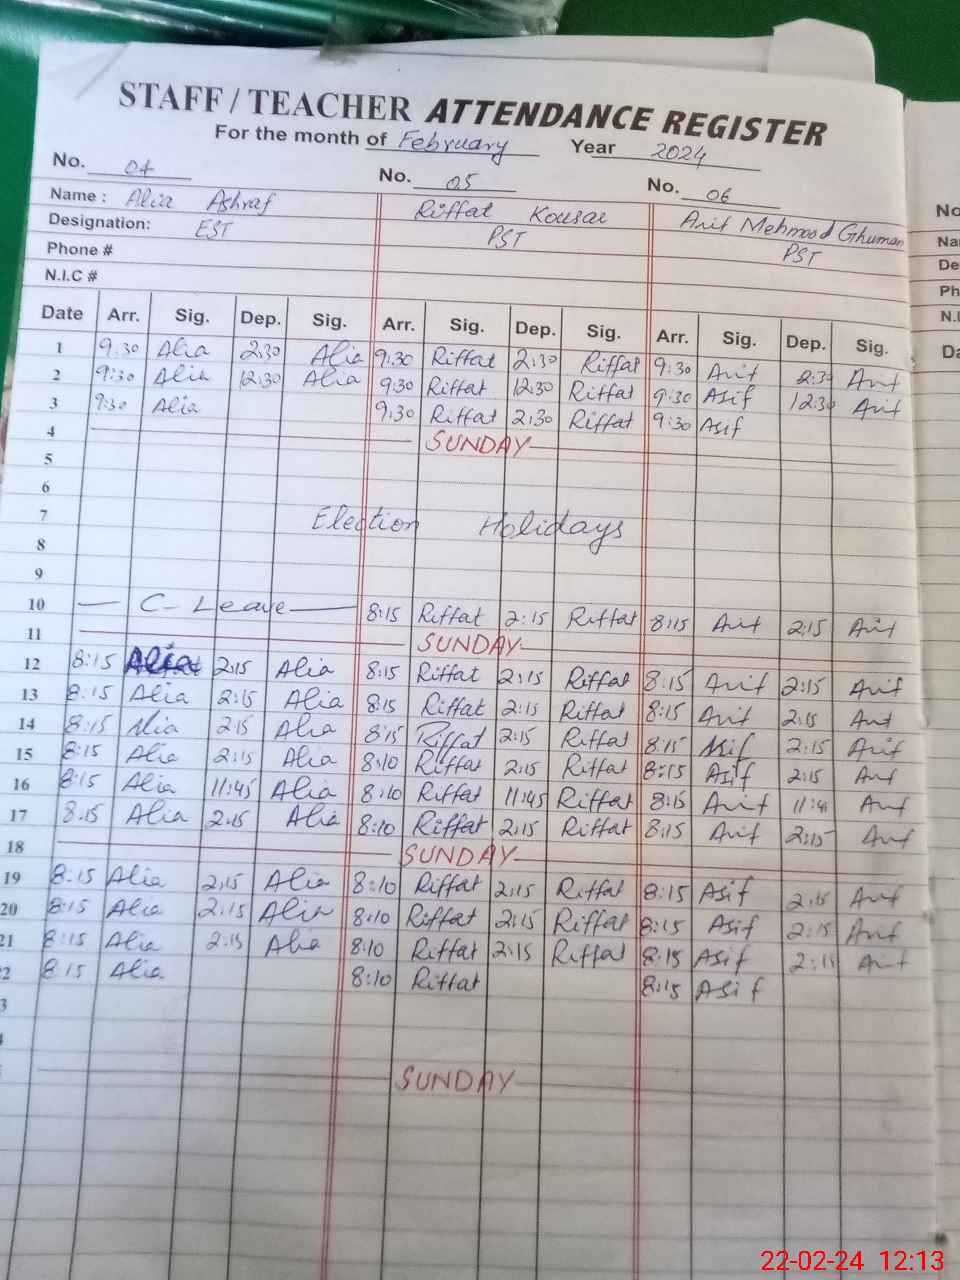 STAFF / TEACHER ATTENDANCE REGISTER
For the month of February Year 2024
No. 04 No. 05 No. 06
Name : Alia Ashraf Riffat Kousar Asif Mehmood Ghuman
Designation: EST PST PST
Phone #
N.I.C #
Date Arr. Sig. Dep. Sig. Arr. Sig. Dep. Sig. Arr. Sig. Dep. Sig.
1 9:30 Alia 2:30 Alia 9:30 Riffat 2:30 Riffat 9:30 Asif 2:30 Asif
2 9:30 Alia 12:30 Alia 9:30 Riffat 12:30 Riffat 9:30 Asif 12:30 Asif
3 9:30 Alia 9:30 Riffat 2:30 Riffat 9:30 Asif
4 SUNDAY
5
6
7 Election Holidays
8
9
10 C-Leave 8:15 Riffat 2:15 Riffat 8:15 Asif 2:15 Asif
11 SUNDAY
12 8:15 Alia 2:15 Alia 8:15 Riffat 2:15 Riffat 8:15 Asif 2:15 Asif
13 8:15 Alia 2:15 Alia 8:15 Riffat 2:15 Riffat 8:15 Asif 2:15 Asif
14 8:15 Alia 2:15 Alia 8:15 Riffat 2:15 Riffat 8:15 Asif 2:15 Asif
15 8:15 Alia 2:15 Alia 8:10 Riffat 2:15 Riffat 8:15 Asif 2:15 Asif
16 8:15 Alia 11:45 Alia 8:10 Riffat 11:45 Riffat 8:15 Asif 11:45 Asif
17 8:15 Alia 2:15 Alia 8:10 Riffat 2:15 Riffat 8:15 Asif 2:15 Asif
18 SUNDAY
19 8:15 Alia 2:15 Alia 8:10 Riffat 2:15 Riffat 8:15 Asif 2:15 Asif
20 8:15 Alia 2:15 Alia 8:10 Riffat 2:15 Riffat 8:15 Asif 2:15 Asif
21 8:15 Alia 2:15 Alia 8:10 Riffat 2:15 Riffat 8:15 Asif 2:15 Asif
2 8:15 Alia 8:10 Riffat 8:15 Asif
3
SUNDAY
No
Na
De
Ph
N.I
Da
22-02-24 12:13